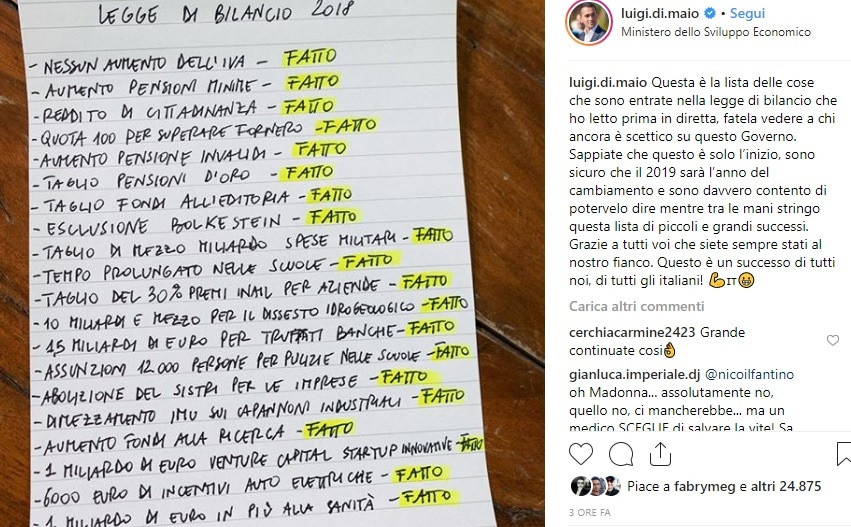 LEGGE DI BILANCIO 2018
- NESSUN AUMENTO DELL'IVA - FATTO
- AUMENTO PENSIONI MINIME - FATTO
- REDDITO DI CITTADINANZA - FATTO
- QUOTA 100 PER SUPERARE FORNERO - FATTO
- AUMENTO PENSIONE INVALIDI - FATTO
- TAGLIO PENSIONI D'ORO - FATTO
- TAGLIO FONDI ALL'EDITORIA - FATTO
- ESCLUSIONE BOLKESTEIN - FATTO
- TAGLIO DI MEZZO MILIARDO SPESE MILITARI - FATTO
- TEMPO PROLUNGATO NELLE SCUOLE - FATTO
- TAGLIO DEL 30% PREMI INAIL PER AZIENDE - FATTO
- 10 MILIARDI E MEZZO PER IL DISSESTO IDROGEOLOGICO - FATTO
- 1,5 MILIARDI DI EURO PER TRUFFATI BANCHE - FATTO
- ASSUNZIONI 12.000 PERSONE PER PULIZIE NELLE SCUOLE - FATTO
- ABOLIZIONE DEL SISTRI PER LE IMPRESE - FATTO
- DIMEZZAMENTO IMU SUI CAPANNONI INDUSTRIALI - FATTO
- AUMENTO FONDI ALLA RICERCA - FATTO
- 1 MILIARDO DI EURO VENTURE CAPITAL STARTUP INNOVATIVE - FATTO
- 6000 EURO DI INCENTIVI AUTO ELETTRICHE - FATTO
- 1 MILIARDO DI EURO IN PIÙ ALLA SANITÀ - FATTO
luigi.di.maio • Segui
Ministero dello Sviluppo Economico
luigi.di.maio Questa è la lista delle cose
che sono entrate nella legge di bilancio che
ho letto prima in diretta, fatela vedere a chi
ancora è scettico su questo Governo.
Sappiate che questo è solo l'inizio, sono
sicuro che il 2019 sarà l'anno del
cambiamento e sono davvero contento di
potervelo dire mentre tra le mani stringo
questa lista di piccoli e grandi successi.
Grazie a tutti voi che siete sempre stati al
nostro fianco. Questo è un successo di tutti
noi, di tutti gli italiani! 💪IT😁
Carica altri commenti
cerchiacarmine2423 Grande
continuate cosi👌
gianluca.imperiale.dj @nicoilfantino
oh Madonna... assolutamente no,
quello no, ci mancherebbe... ma un
medico SCEGLIE di salvare la vite! Sa
Piace a fabrymeg e altri 24.875
3 ORE FA